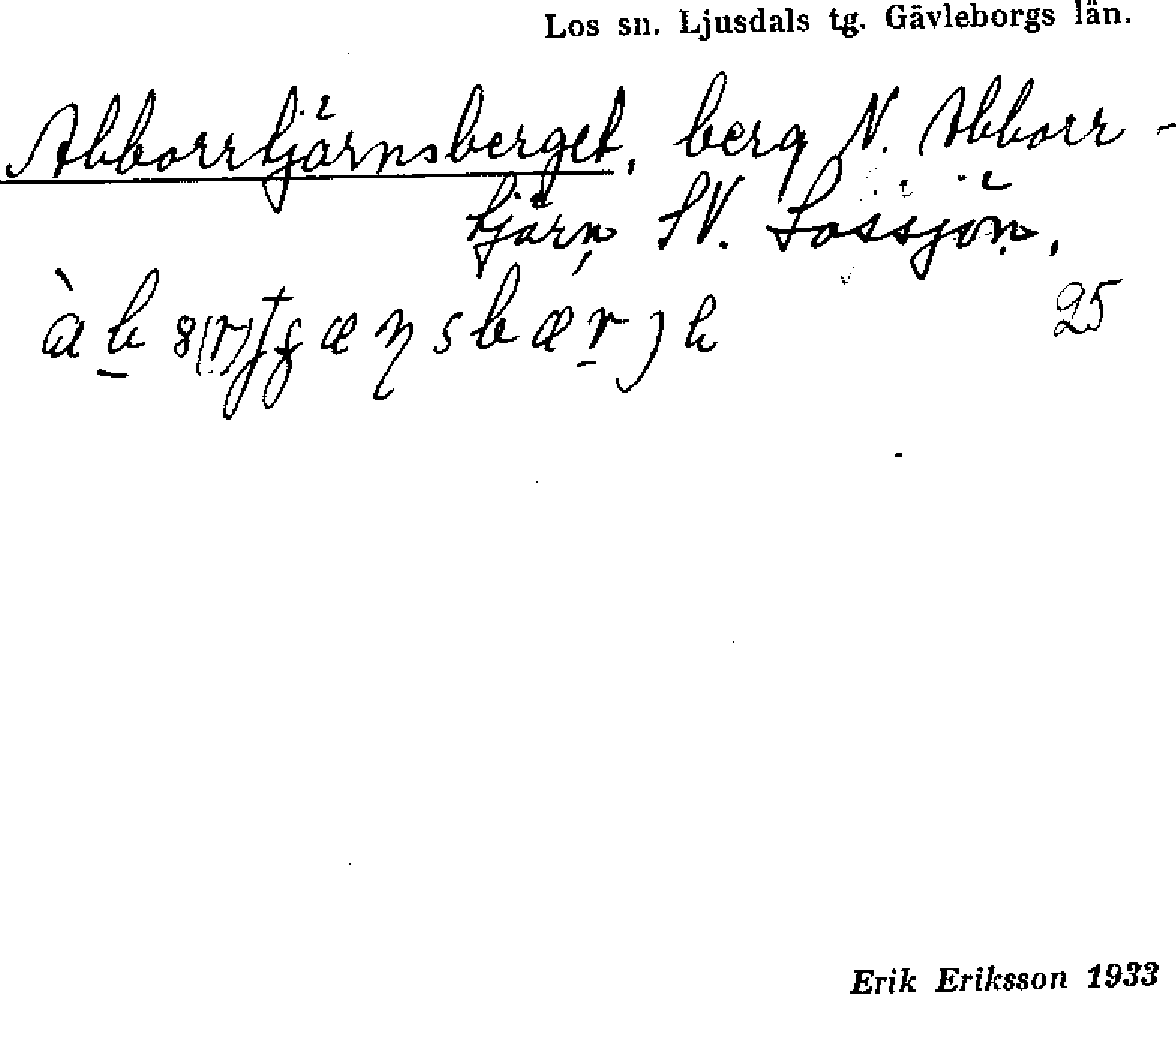 Los sn. Ljusdals tg. Gävleborgs län.
Abborrtjärnsberget, berg N. Abborr-
tjärn, SV. Lossjön.
25
Erik Eriksson 1933